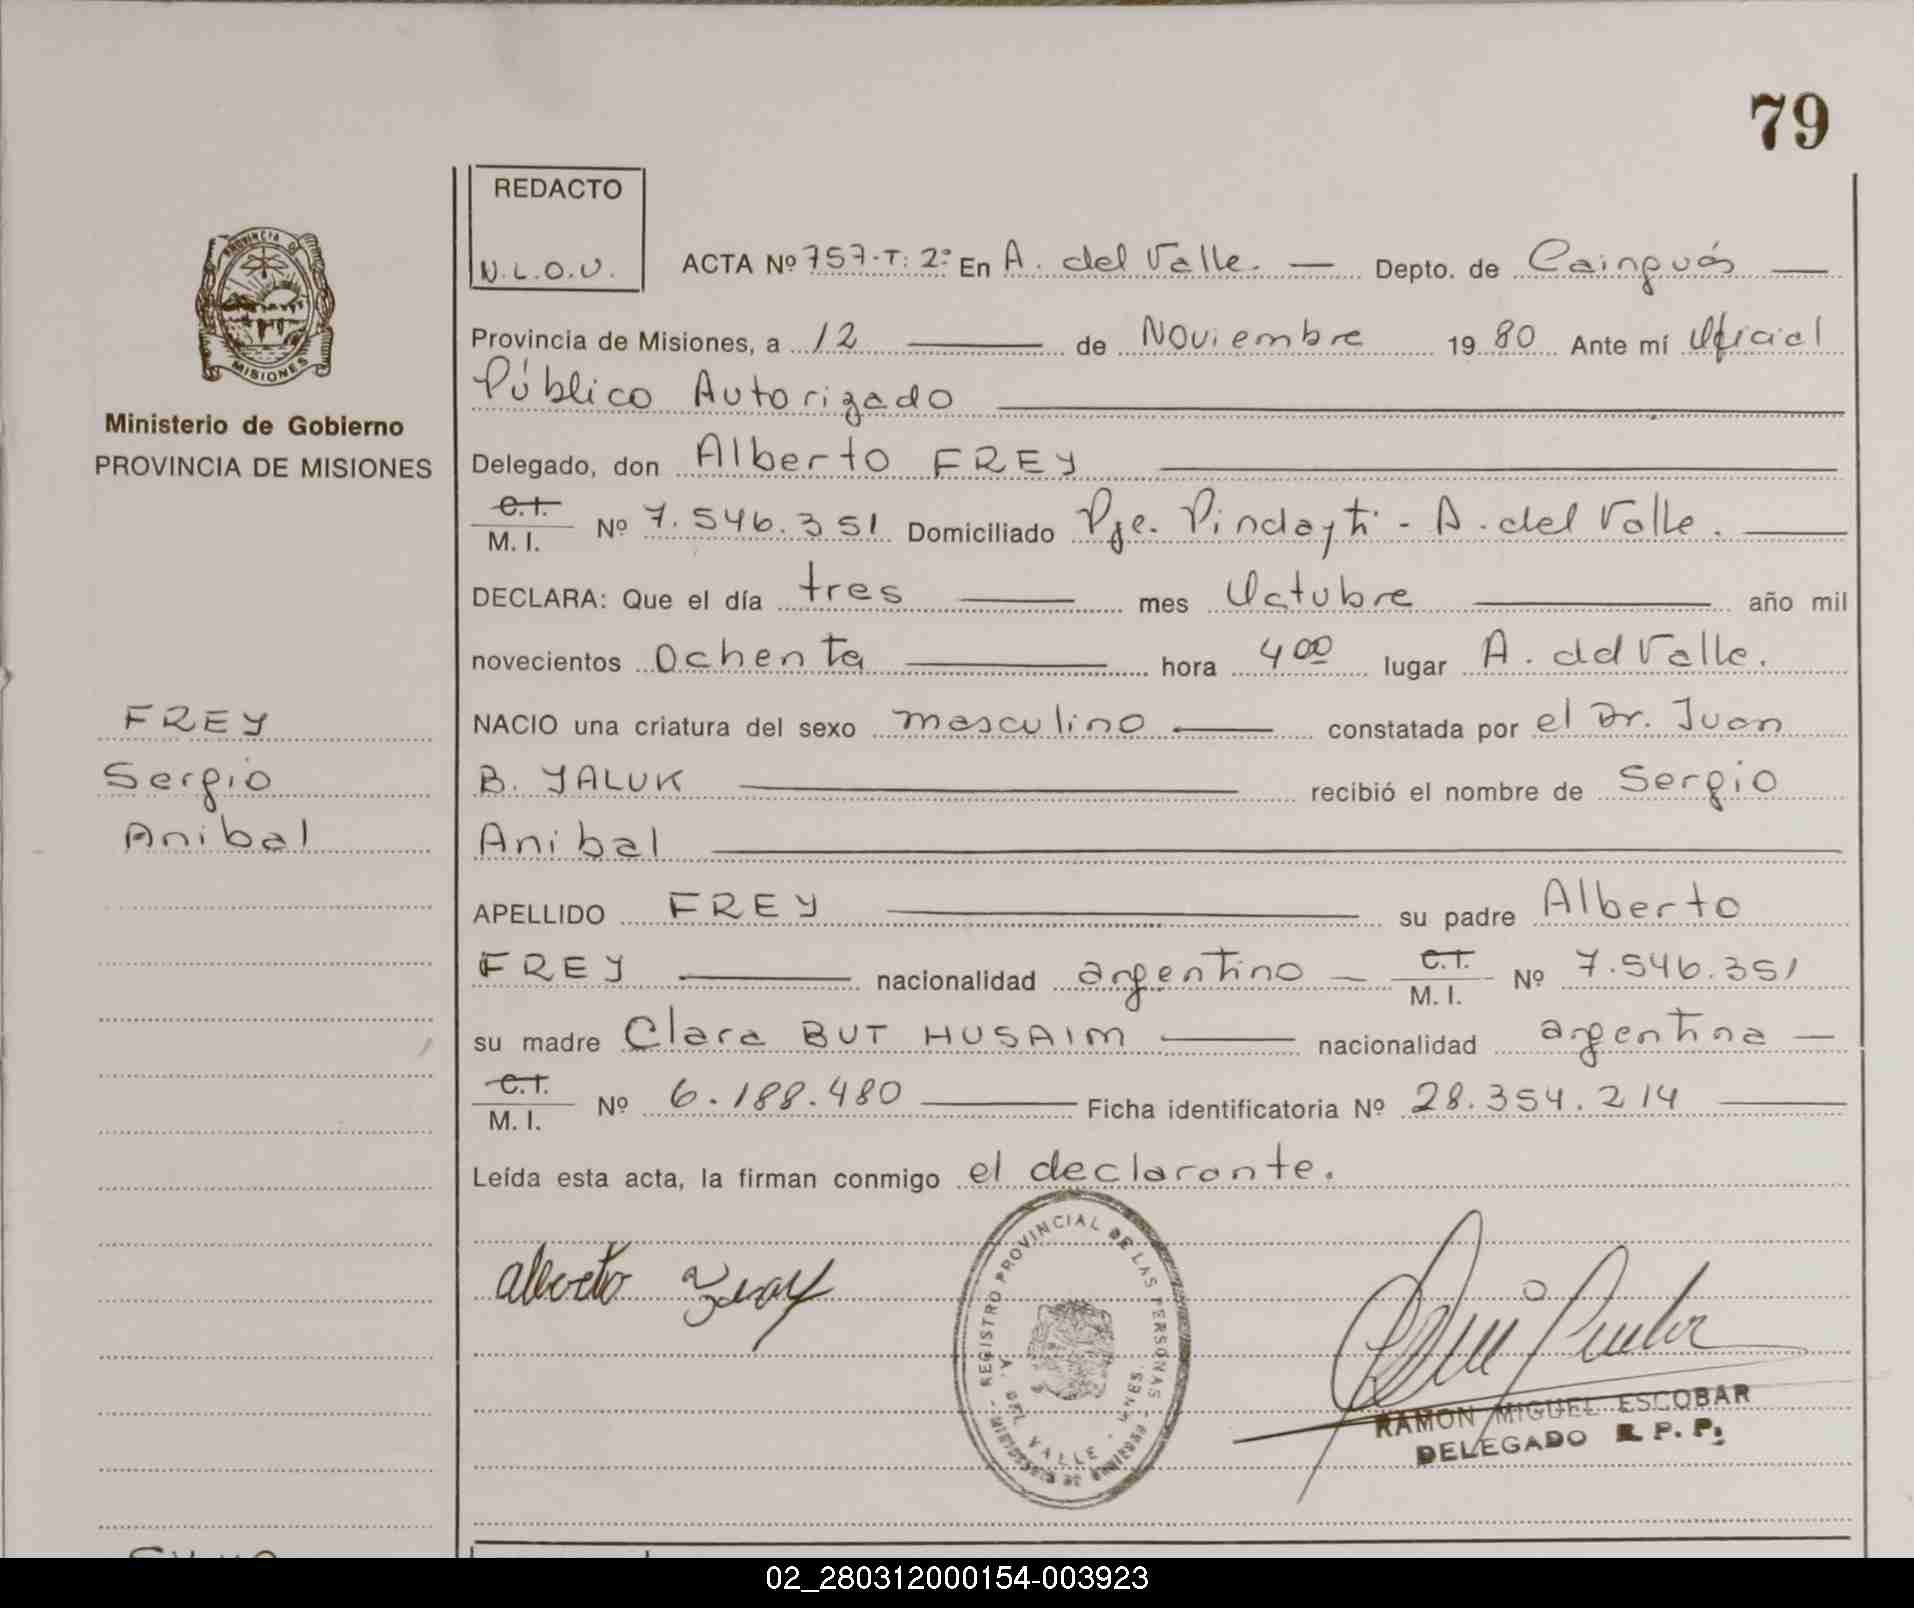 79
REDACTO
N.L.O.V.
ACTA Nº 757-T: 2º En A. del Valle. — Depto. de Cainguás —
PROVINCIA DE
MISIONES
Provincia de Misiones, a 12 — de Noviembre 19 80 Ante mí Oficial
Público Autorizado —
Ministerio de Gobierno
PROVINCIA DE MISIONES
Delegado, don Alberto FREY —
C.I. M. I. Nº 7.546.351 Domiciliado Pje. Pindayti - A. del Valle. —
DECLARA: Que el día tres — mes Octubre — año mil
novecientos Ochenta — hora 4 00 lugar A. del Valle.
FREY
Sergio
Anibal
NACIO una criatura del sexo masculino — constatada por el Dr. Juan
B. YALUK — recibió el nombre de Sergio
Anibal —
APELLIDO FREY — su padre Alberto
FREY — nacionalidad argentino — C.I. M. I. Nº 7.546.351
su madre Clara BUT HUSAIM — nacionalidad argentina —
C.I. M. I. Nº 6.188.480 — Ficha identificatoria Nº 28.354.214 —
Leída esta acta, la firman conmigo el declarante.
alberto Frey
REGISTRO PROVINCIAL DE LAS PERSONAS
A. DEL VALLE - MNES.
RAMON MIGUEL ESCOBAR
DELEGADO R. P. P.
02_280312000154-003923